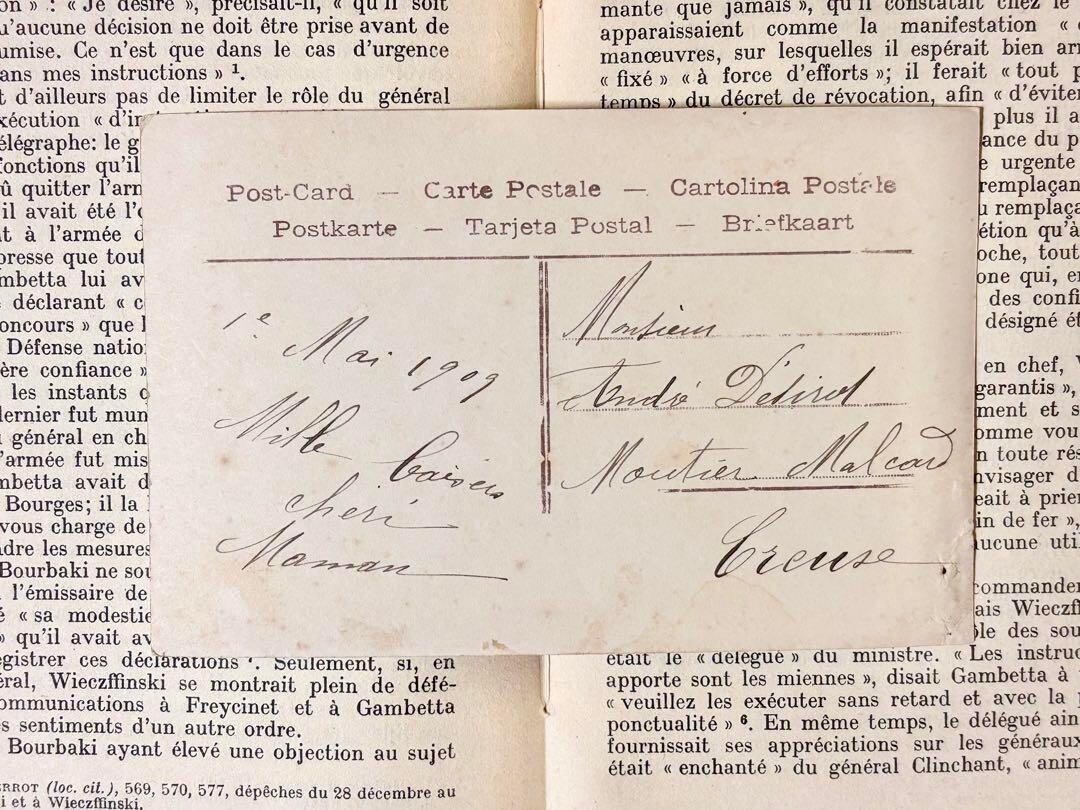 on » : « Je désire », précisait-il, « qu'il soit
u'aucune décision ne doit être prise avant de
umise. Ce n'est que dans le cas d'urgence
ans mes instructions » ¹.
t d'ailleurs pas de limiter le rôle du général
xécution « d'in
élégraphe: le g
fonctions qu'il
û quitter l'arm
il avait été l'o
t à l'armée d
presse que tout
mbetta lui av
déclarant « c
concours » que l
Défense natio
ère confiance »
les instants
dernier fut mun
général en ch
'armée fut mis
mbetta avait d
Bourges; il la
vous charge de
dre les mesures
Bourbaki ne sou
l'émissaire de
é « sa modestie
» qu'il avait av
egistrer ces déclarations ⁷. Seulement, si, en
éral, Wieczffinski se montrait plein de défé-
ommunications à Freycinet et à Gambetta
s sentiments d'un autre ordre.
Bourbaki ayant élevé une objection au sujet
ERROT (loc. cil.), 569, 570, 577, dépêches du 28 décembre au
i et à Wieczffinski.
Post-Card — Carte Postale — Cartolina Postale
Postkarte — Tarjeta Postal — Briefkaart
1e Mai 1909
Mille baisers
chéri
Maman
Monsieur
André Désirot
Moutier Malcard
Creuse
mante que jamais », qu'il constatait chez le
apparaissaient comme la manifestation «
manœuvres, sur lesquelles il espérait bien arr
« fixé » « à force d'efforts »; il ferait « tout p
temps » du décret de révocation, afin « d'éviter
plus il a
ance du p
e urgente
remplaçan
u remplaça
étion qu'à
oche, tout
one qui, e
des confi
désigné ét
en chef, V
garantis »,
ment et s
omme vou
n toute rés
nvisager d
eait à prier
in de fer »,
aucune util
commander
ais Wieczf
ôle des sou
était le « délégué » du ministre. « Les instruc
apporte sont les miennes », disait Gambetta à
« veuillez les exécuter sans retard et avec la p
ponctualité » ⁶. En même temps, le délégué ain
fournissait ses appréciations sur les généraux
était « enchanté » du général Clinchant, « anim